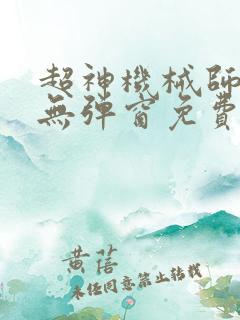 超神機械師
無彈窗免費
黄萻
未经同意禁止转载